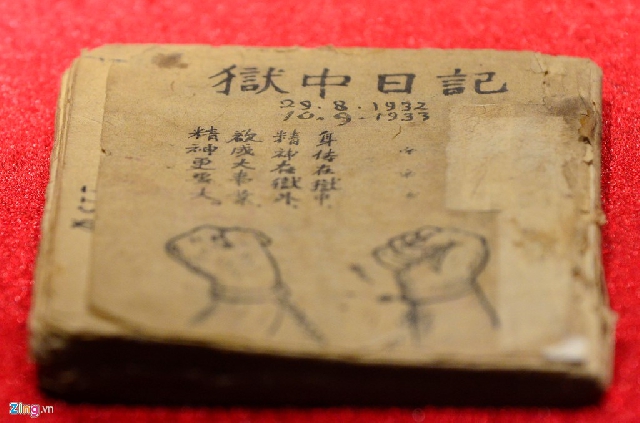 獄中日記
29.8.1932
10.9.1933
身体在獄中
精神在獄外
欲成大事業
精神更要大
Zing.vn